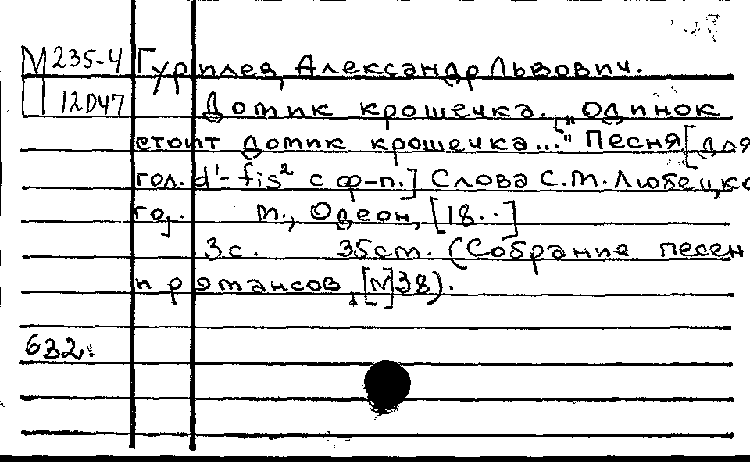 М 235-4 Гурилев, Александр Львович.
П 12047 Домик крошечка. „Одинок
стоит домик крошечка..." Песня [для
гол. d¹-fis² с ф-п.] Слова С.М. Любецко
го,. М., Одеон, [18..]
3 с. 35 см. (Собрание песен
и романсов, [№]38).
632.